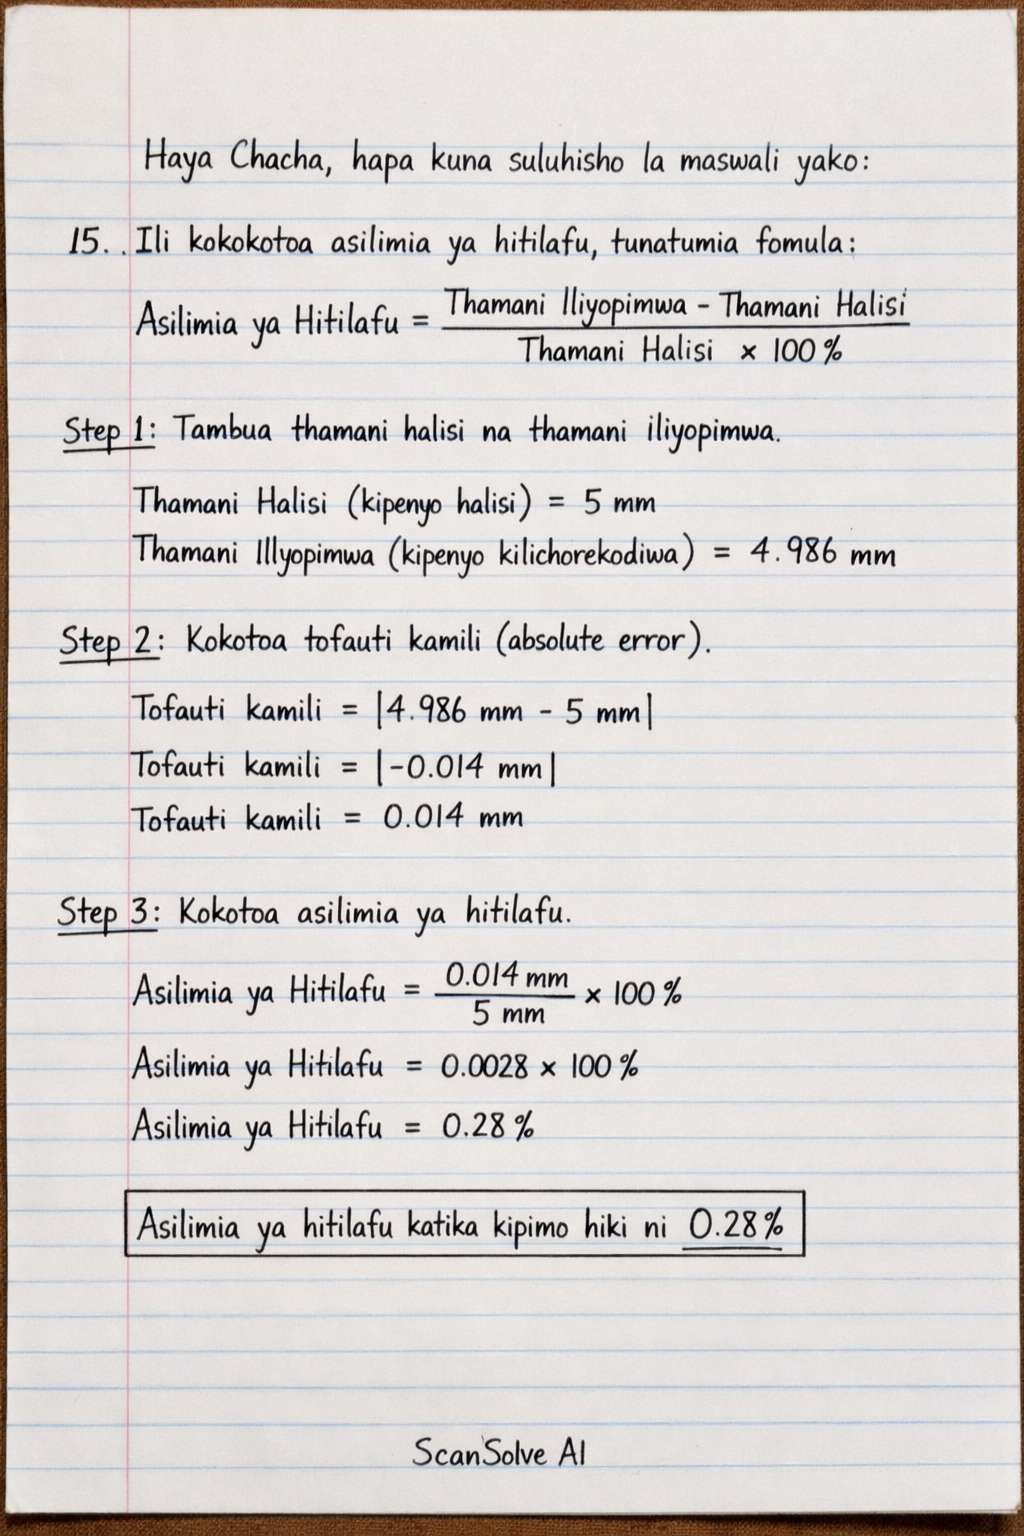 Haya Chacha, hapa kuna suluhisho la maswali yako:
15.. Ili kokokotoa asilimia ya hitilafu, tunatumia fomula:
Asilimia ya Hitilafu = Thamani Iliyopimwa - Thamani Halisi
Thamani Halisi × 100 %
Step 1: Tambua thamani halisi na thamani iliyopimwa.
Thamani Halisi (kipenyo halisi) = 5 mm
Thamani Illyopimwa (kipenyo kilichorekodiwa) = 4.986 mm
Step 2: Kokotoa tofauti kamili (absolute error).
Tofauti kamili = |4.986 mm - 5 mm|
Tofauti kamili = |-0.014 mm|
Tofauti kamili = 0.014 mm
Step 3: Kokotoa asilimia ya hitilafu.
Asilimia ya Hitilafu = 0.014 mm / 5 mm × 100 %
Asilimia ya Hitilafu = 0.0028 × 100 %
Asilimia ya Hitilafu = 0.28 %
Asilimia ya hitilafu katika kipimo hiki ni 0.28%
ScanSolve AI